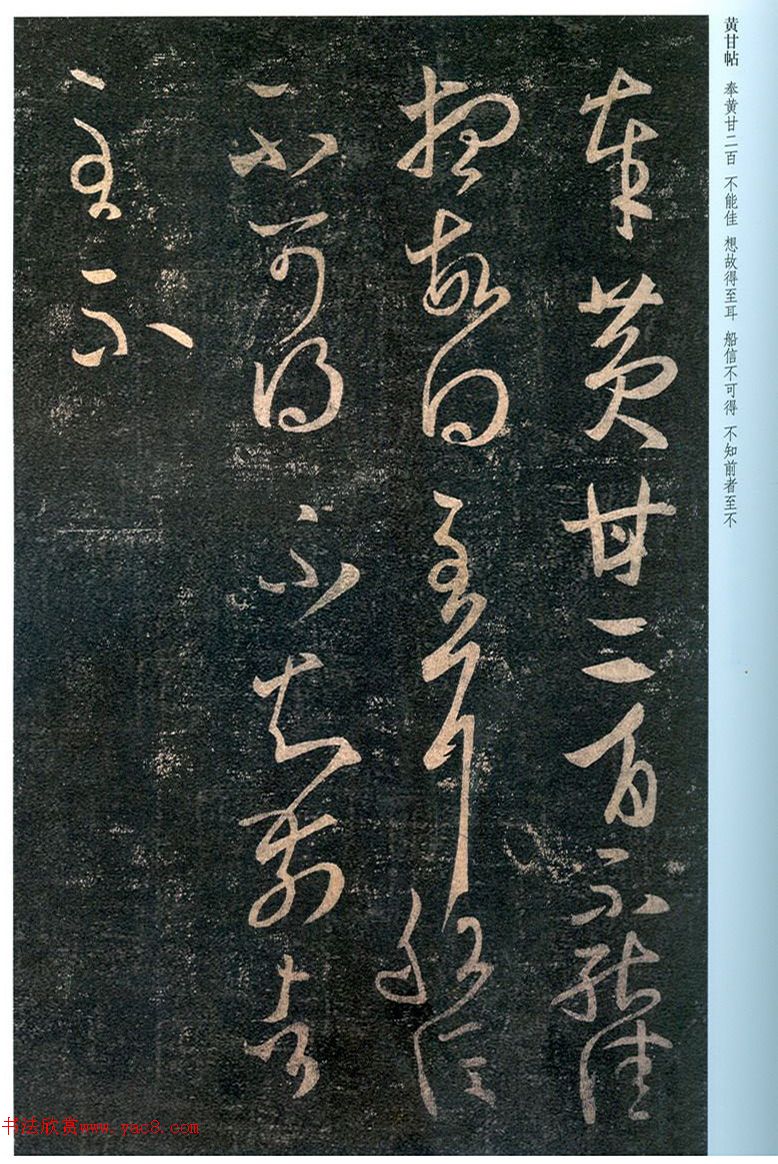 黄甘帖 奉黄甘二百 不能佳 想故得至耳 船信不可得 不知前者至不
奉黄甘二百不能佳
想故得至耳船信
不可得不知前者
至不
书法欣赏www.yac8.com